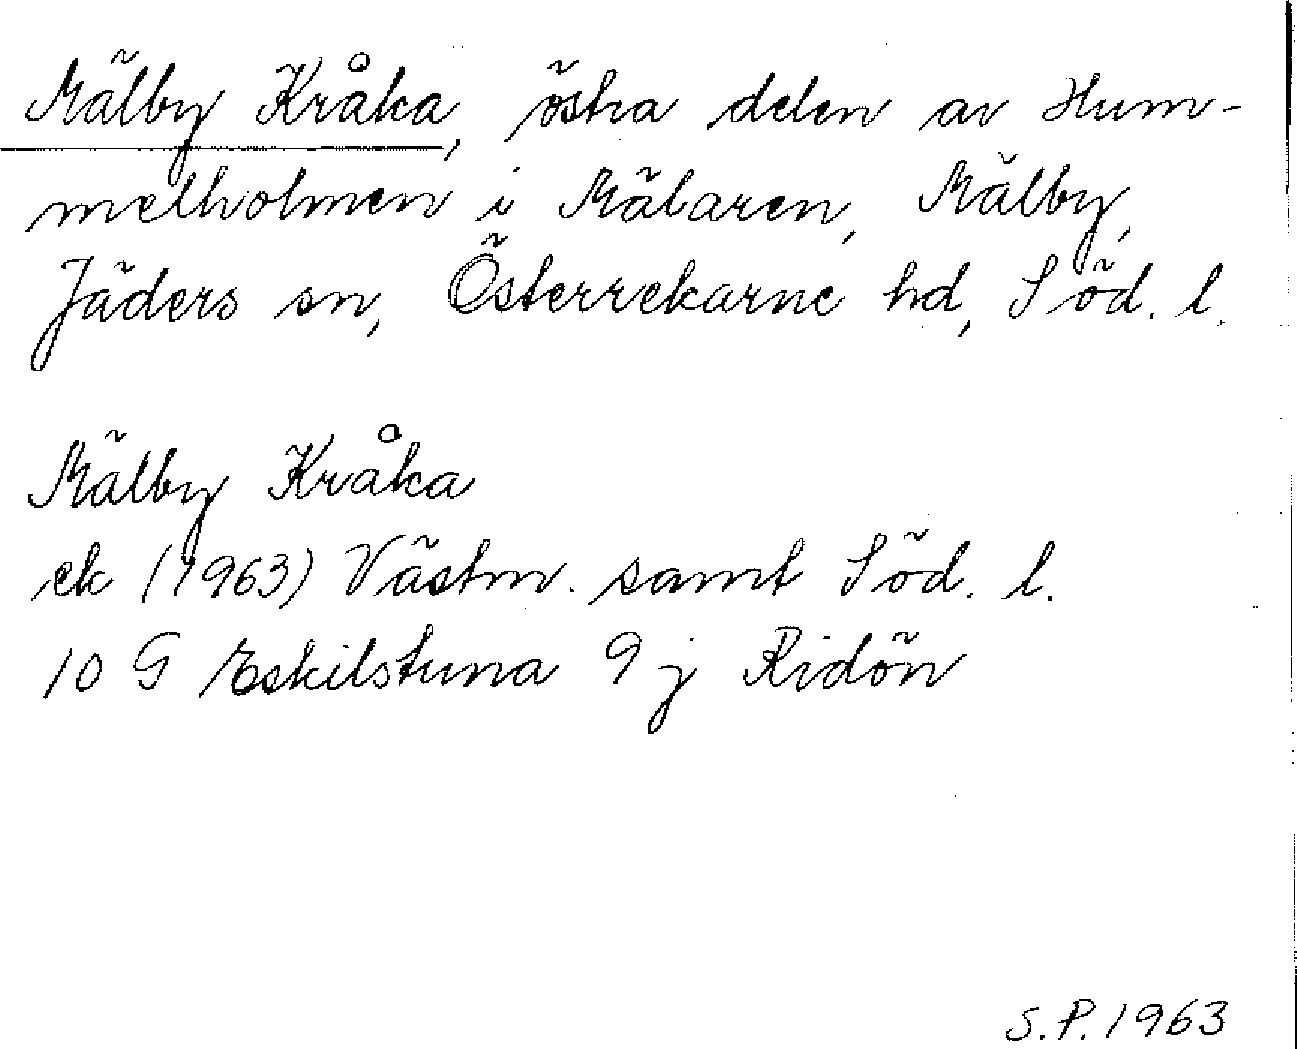 Mälby Kråka, östra delen av Hum-
melholmen i Mälaren, Mälby,
Jäders sn, Österrekarne hd, Söd. l.
Mälby Kråka
ek (1963) Västm. samt Söd. l.
10 G Eskilstuna 9 j Ridön
S.P. 1963